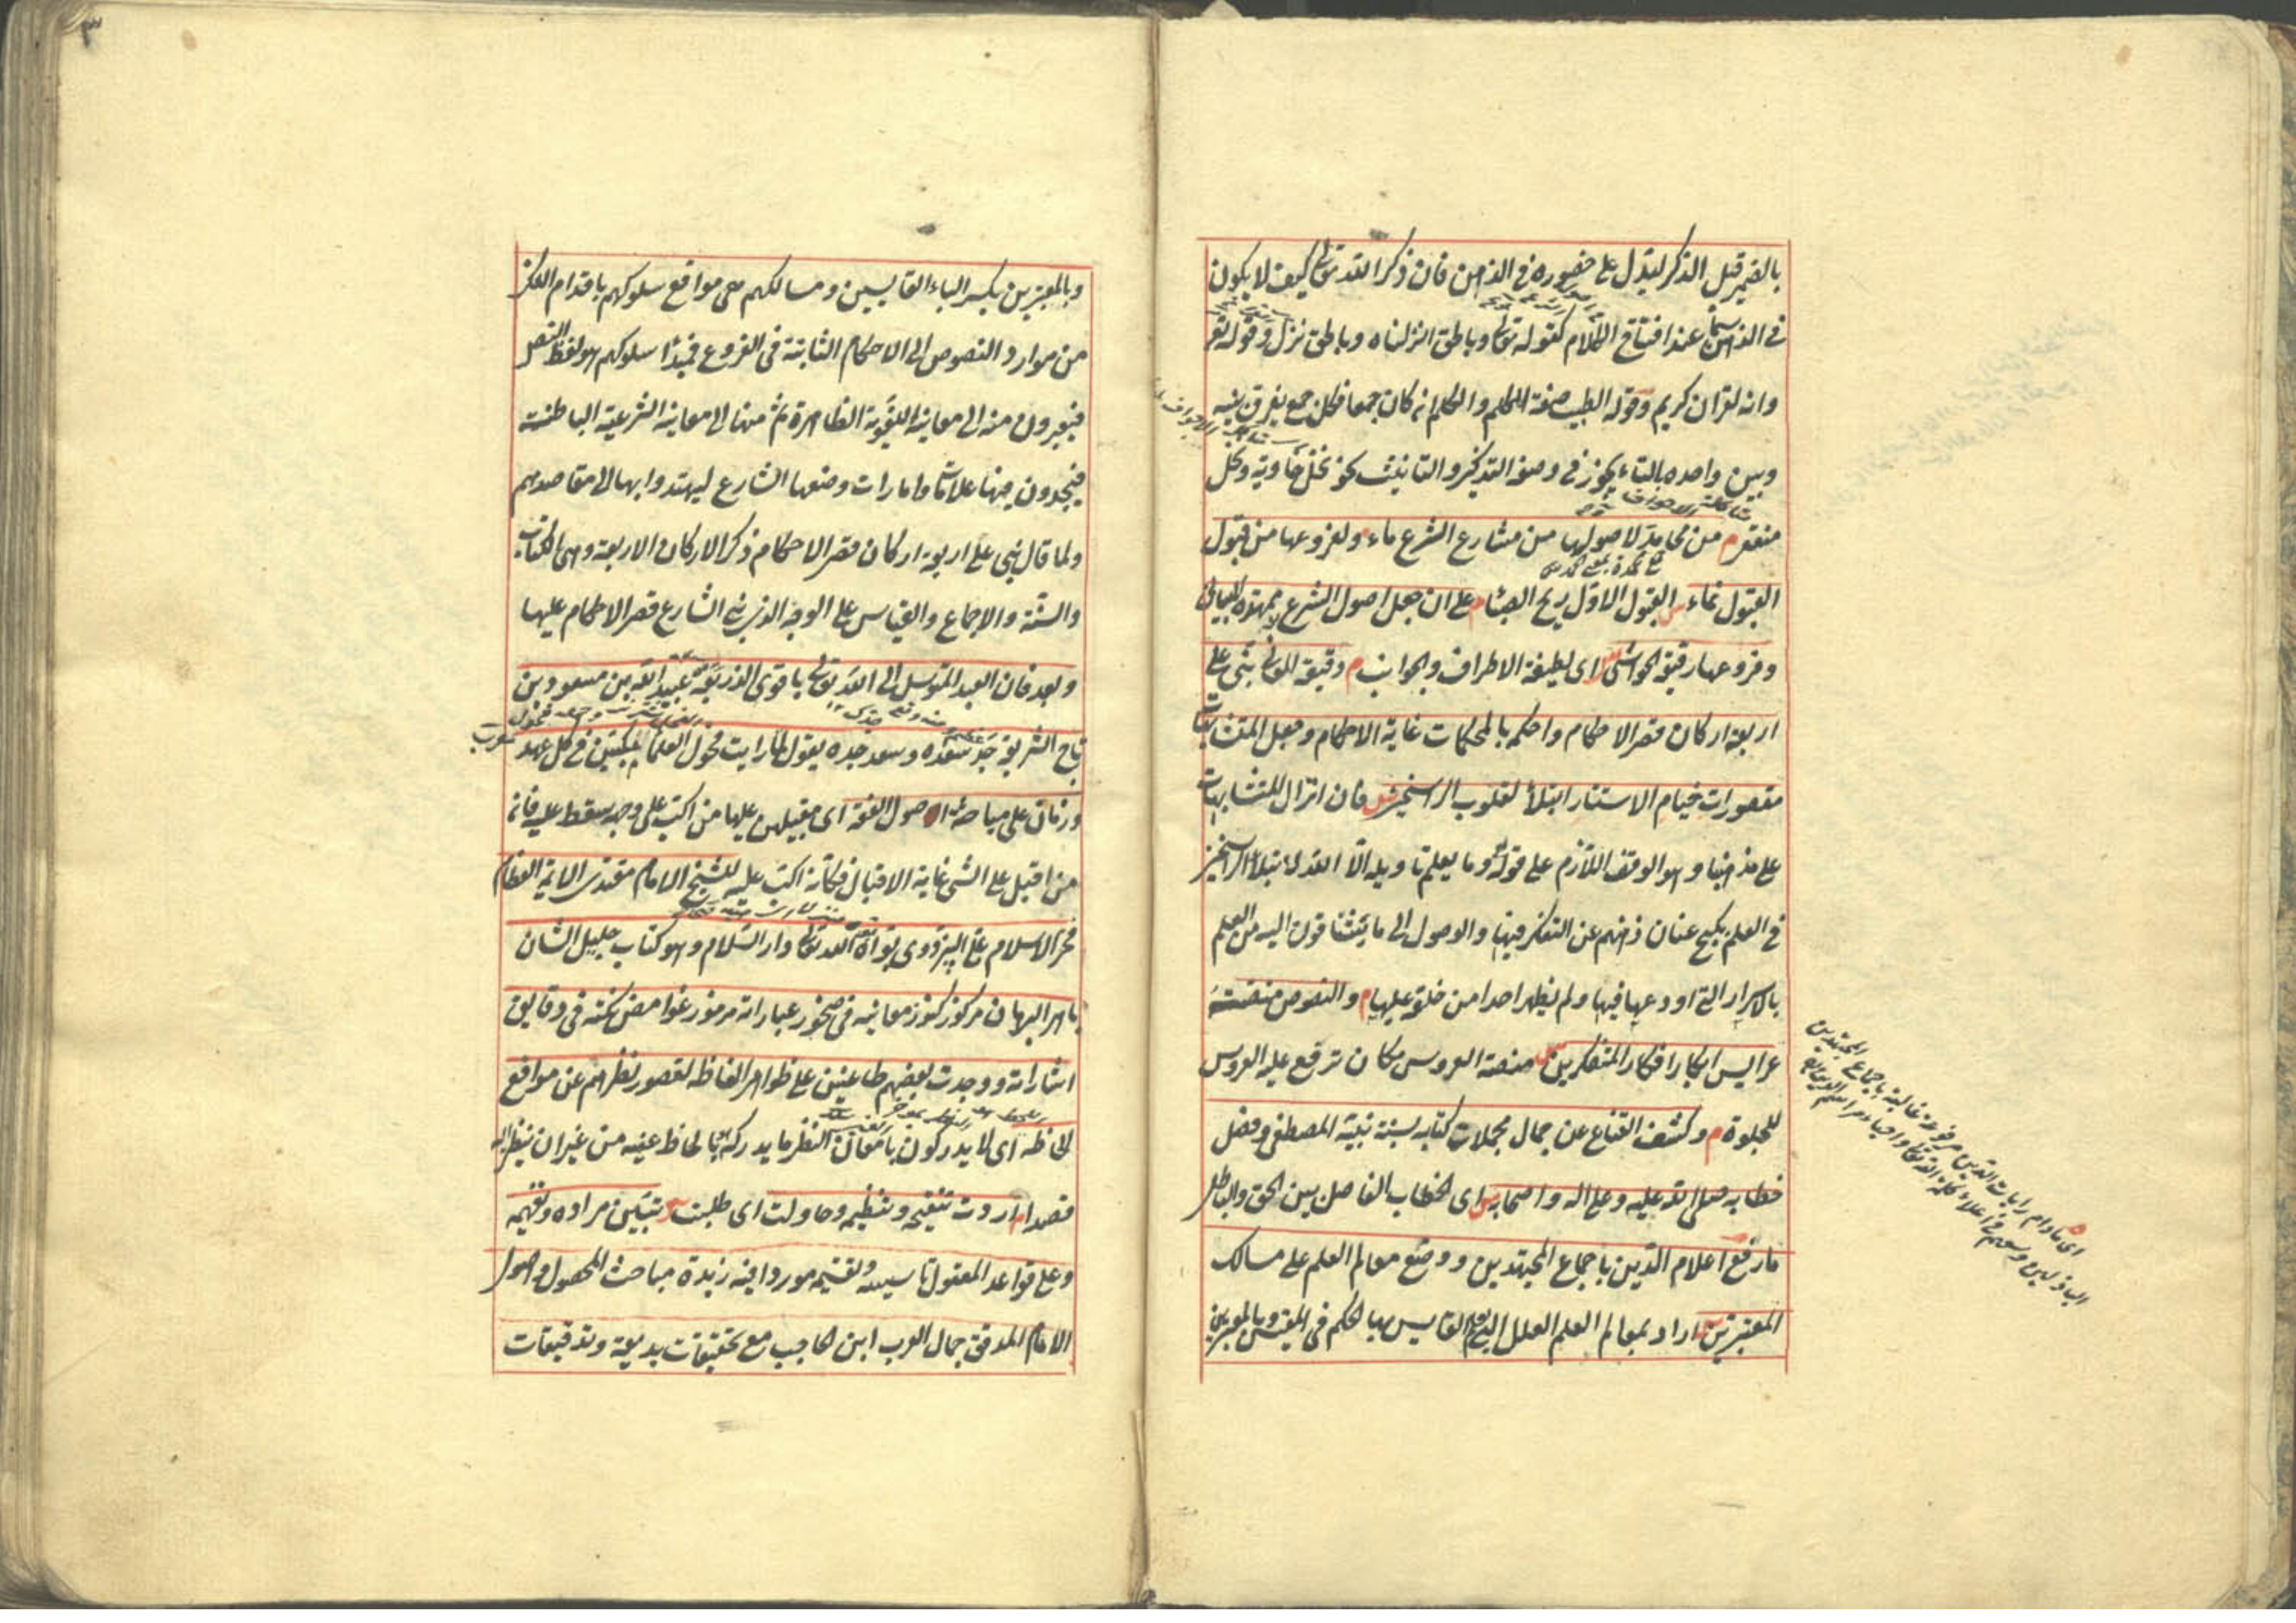 بالضمير قبل الذكر ليدل على حضوره في الذهن فان ذكر الله تعالى كيف لا يكون
في الذهن سيما عند افتتاح الكلام كقوله تعالى وبالحق انزلناه وبالحق نزل وقوله تعالى
وانه لقران كريم وقوله الطيب صفة للكلم والكلم انه كان جمعا فكل جمع يفرق بينه
وبين واحده بالتاء يجوز في وصفه التذكير والتانيث نحو نخل خاوية ونخل
منقعر م من محامد لاصولها من مشارع الشرع ماء ولفروعها من قبول
القبول نماء ش القبول الاول ريح الصبا م على ان جعل اصول الشرع ممهدة المباني
وفروعها رقيقة الحواشي ش اي لطيفة الاطراف والجوانب م دقيقة المعاني بنى على
اربعة اركان قصر الاحكام واحكمه بالمحكمات غاية الاحكام وجعل المتشابهات
مقصورات خيام الاستتار ابتلاء لقلوب الراسخين ش فان انزال المتشابهات
على مذهبنا وهو الوقف اللازم على قوله وما يعلم تاويله الا الله لابتلاء الراسخين
في العلم بكبح عنان ذهنهم عن التفكر فيها والوصول الى ما يشتاقون اليه من العلم
بالاسرار التي اودعها فيها ولم يظهر احدا من خلقه عليها م والنصوص منصة
عرايس ابكار افكار المتفكرين ش منصة العروس مكان ترفع عليه العروس
للجلوة م وكشف القناع عن جمال مجملات كتابه بسنة نبيه المصطفى وفصل
خطابه صلى الله عليه وعلى اله واصحابه ش اي الخطاب الفاصل بين الحق والباطل
ما رفع اعلام الدين باجماع المجتهدين ووضع معالم العلم على مسالك
المعتبرين ش اراد بمعالم العلم العلل التي يعلم القايس بها الحكم في المقيس وبالمعتبرين
اي ما دام رايات الدين مرفوعة عالية باجماع المجتهدين
الباذلين وسعهم في اعلاء كلمة الله تعالى واحياء مراسم الدين
وبالمعتبرين بكسر الباء القايسين ومسالكهم هي مواقع سلوكهم باقدام الفكر
من موارد النصوص الى الاحكام الثابتة في الفروع فمبدأ سلوكهم هو لفظ النص
فيعبرون منه الى معانيه اللغوية الظاهرة ثم منها الى معانيه الشرعية الباطنة
فيجدون فيها علامات وامارات وضعها الشارع ليهتدوا بها الى مقاصدهم
ولما قال بني على اربعة اركان قصر الاحكام ذكر الاركان الاربعة وهي الكتاب
والسنة والاجماع والقياس على الوجه الذي بنى الشارع قصر الاحكام عليها
وبعد فان العبد المتوسل الى الله تعالى باقوى الذريعة عبيد الله بن مسعود بن
تاج الشريعة جد سعده وسعد جده يقول لما رايت فحول العلماء مكبين في كل عهد
وزمان على مباحثة اصول الفقه اي مقبلين عليها من اكب على وجهه سقط عليه فان
من اقبل على الشي غاية الاقبال فكانه اكب عليه للشيخ الامام مقتدى الايمة العظام
فخر الاسلام علي البزدوي بواه الله تعالى دار السلام وهو كتاب جليل الشان
باهر البرهان مركوز كنوز معانيه في صخور عباراته مرموز غوامض نكته في دقايق
اشاراته ووجدت بعضهم طاعنين على ظواهر الفاظه لقصور نظرهم عن مواقع
الحاظه اي لا يدركون بامعان النظر ما يدركه هو بلحاظ عينه من غير ان ينظر اليه
قصدا م اردت تنقيحه وتنظيمه وحاولت اي طلبت تبيين مراده وتفهيمه
وعلى قواعد المعقول تاسيسه وتقسيمه موردا فيه زبدة مباحث المحصول واصول
الامام المدقق جمال العرب ابن الحاجب مع تحقيقات بديعة وتدقيقات